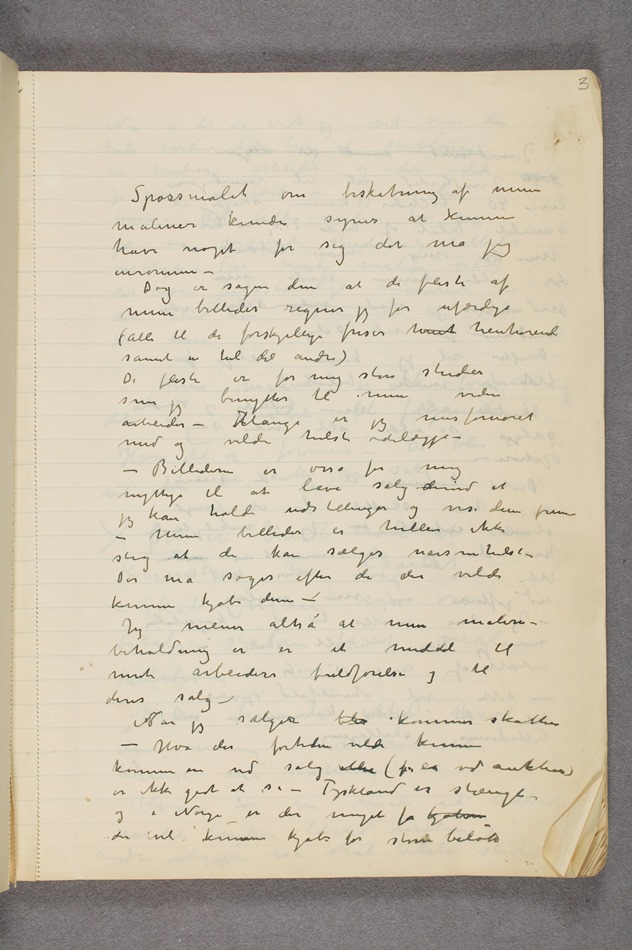 3
Spørsmålet om beskatning af mine
malerier kunde synes at kunne
have noget for sig det må jeg
inrømme –
Dog er sagen den at de fleste af
mine billeder regner jeg for uferdige
(alle til de forskjellige friser henhørende
samt en hel del andre)
De fleste er for mig store studier
som jeg benytter til mine videre
arbeider – Mange er jeg misfornøiet
med og vilde helst ødelægge –
– Billederne er også for mig
nyttige til at lave salg derved at
jeg kan holde udstillinger og vise dem frem
– Mine billeder er heller ikke
slig at de kan sælges nårsomhelst –
Der må søges efter de der vilde
kunne kjøbe dem –
Jeg mener altså at min maleri-
beholdning er et middel til
mit arbeides fuldførelse og til
deres salg –
Når jeg sælger kommer skatten
– Hva der fortiden vilde kunne
komme in ved salg eller (f ex ved auktion)
er ikke godt at si – Tyskland er stængt
og i Norge er der meget få kjøbere
der vil kunne kjøbe for store beløb